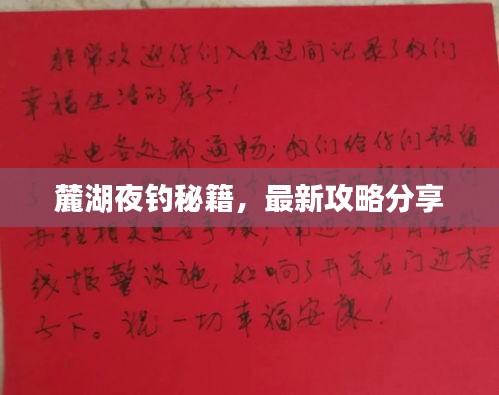 非常欢迎你们入住这间记录了我们
幸福生活的房子！
水电各处都通畅；我们给你们预留
麓湖夜钓秘籍，最新攻略分享
线报警设施，如响了开关在门边柜
子下。祝一切幸福安康！